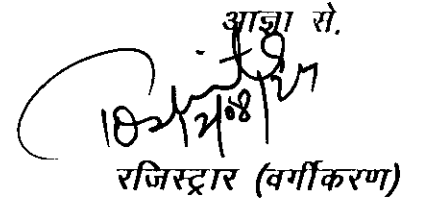 आज्ञा से,
रजिस्ट्रार (वर्गीकरण)